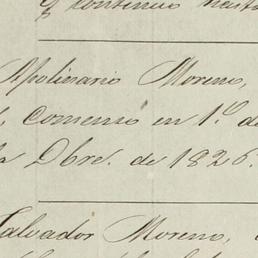 y continuó hasta
Apolinario Moreno,
comenso en 1.º de
Dbre. de 1826.
Salvador Moreno,